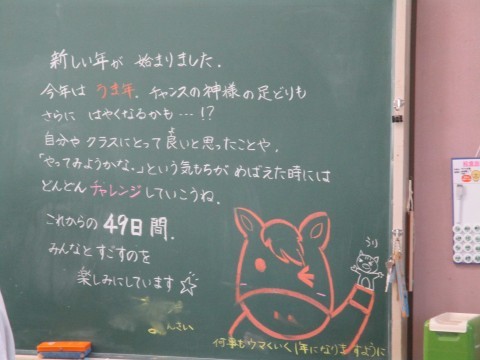 新しい年が 始まりました.
今年は うま年. チャンスの神様の足どりも
さらに はやくなるかも…!?
自分や クラスにとって良いと思ったことや.
「やってみようかな。」という気もちが めばえた時には
どんどん チャレンジしていこうね.
これからの 49日間.
みんなと すごすのを
楽しみにしています☆
何事もウマくいく1年になりますように